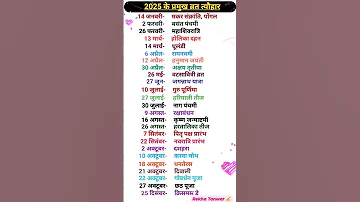 2025 के प्रमुख व्रत त्यौहार
14 जनवरी- मकर संक्रांति, पोंगल
2 फरवरी- बसंत पंचमी
26 फरवरी- महाशिवरात्रि
13 मार्च- होलिका दहन
14 मार्च- धुलंडी
6 अप्रैल- रामनवमी
12 अप्रैल- हनुमान जयंती
30 अप्रैल- अक्षय तृतीया
26 मई- वटसावित्री व्रत
27 जून- जगन्नाथ यात्रा
10 जुलाई- गुरु पूर्णिमा
27 जुलाई- हरियाली तीज
30 जुलाई- नाग पंचमी
9 अगस्त- रक्षाबंधन
16 अगस्त- कृष्ण जन्माष्टमी
26 अगस्त- हरतालिका तीज
7 सितंबर- पितृ पक्ष प्रारंभ
22 सितंबर- नवरात्रि प्रारंभ
2 अक्टूबर- दशहरा
10 अक्टूबर- करवा चौथ
18 अक्टूबर- धनतेरस
21 अक्टूबर- दिवाली
22 अक्टूबर- गोवर्धन पूजा
27 अक्टूबर- छठ पूजा
25 दिसंबर- क्रिसमस डे
Rekha Tanwar